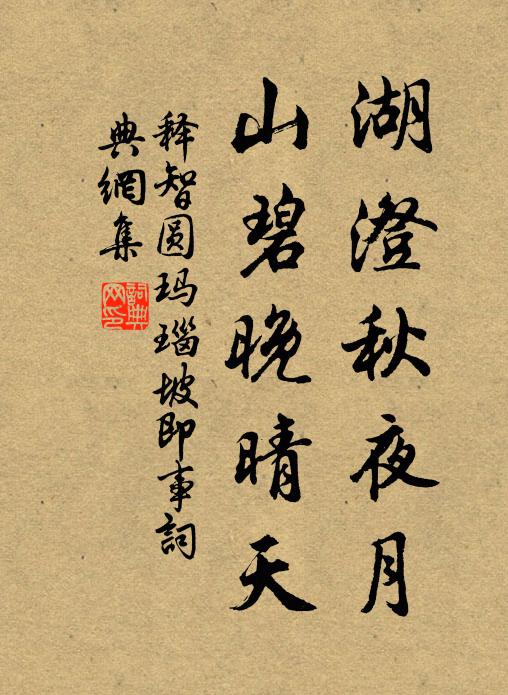 湖澄秋夜月
山碧晚晴天
释智圆玛瑙坡即事詞
典網集
詞典
网印